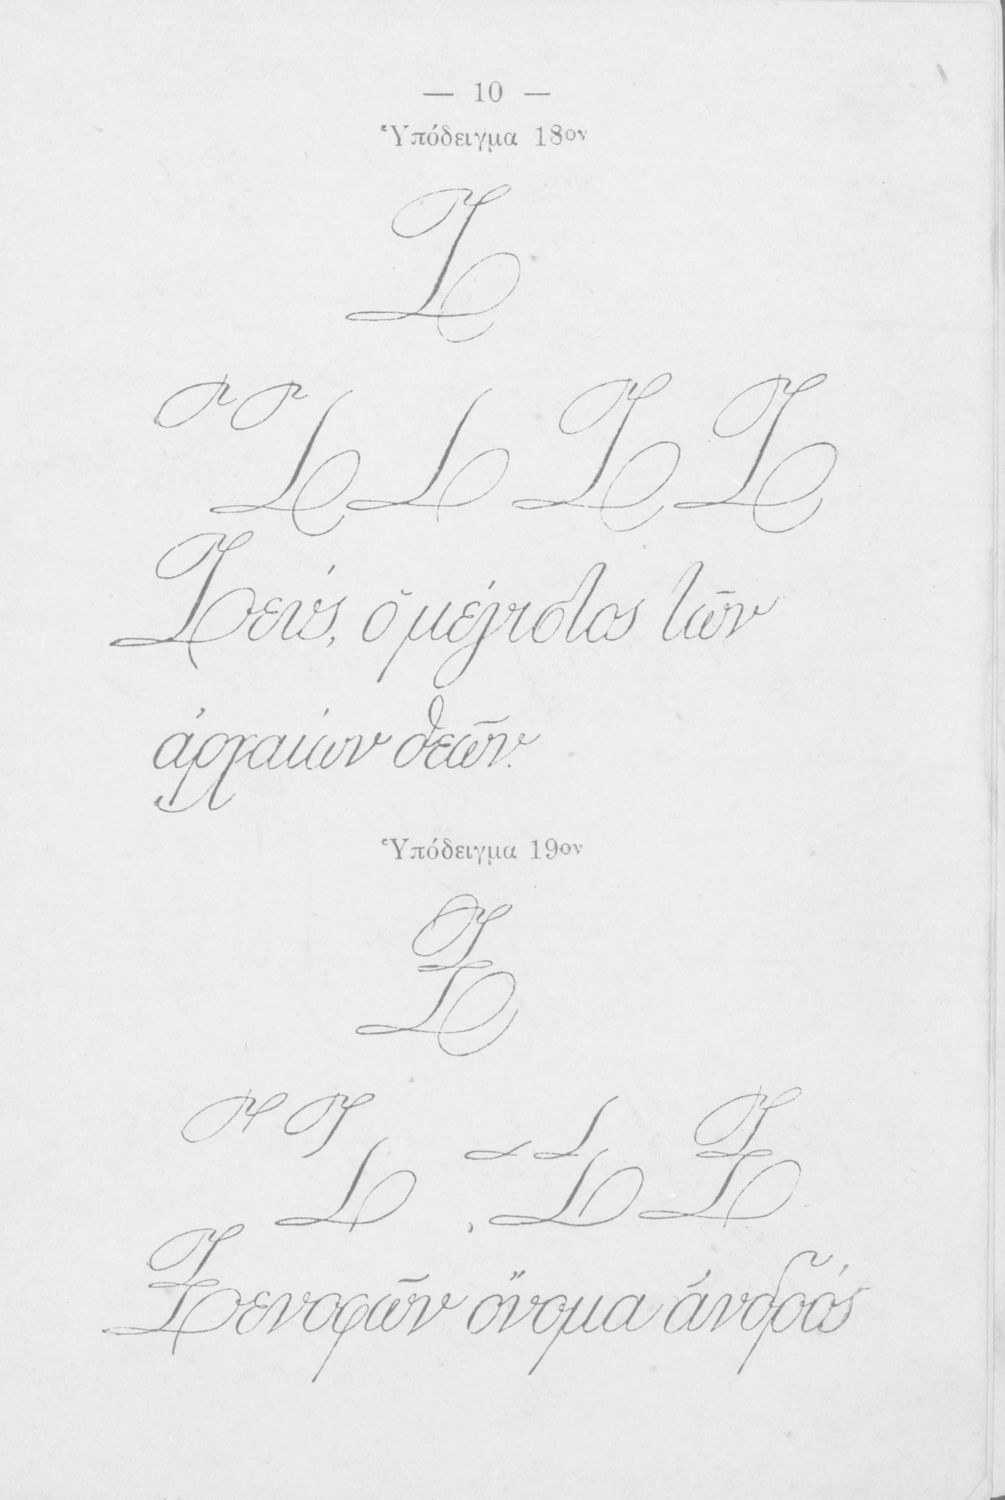 — 10 —
Ὑπόδειγμα 18ον
Ζ
Ζ Ζ
Ζεύς, ὁ μέγιστος τῶν
ἀρχαίων θεῶν.
Ὑπόδειγμα 19ον
Ξ
Ξ
Ξενοφῶν ὄνομα ἀνδρός